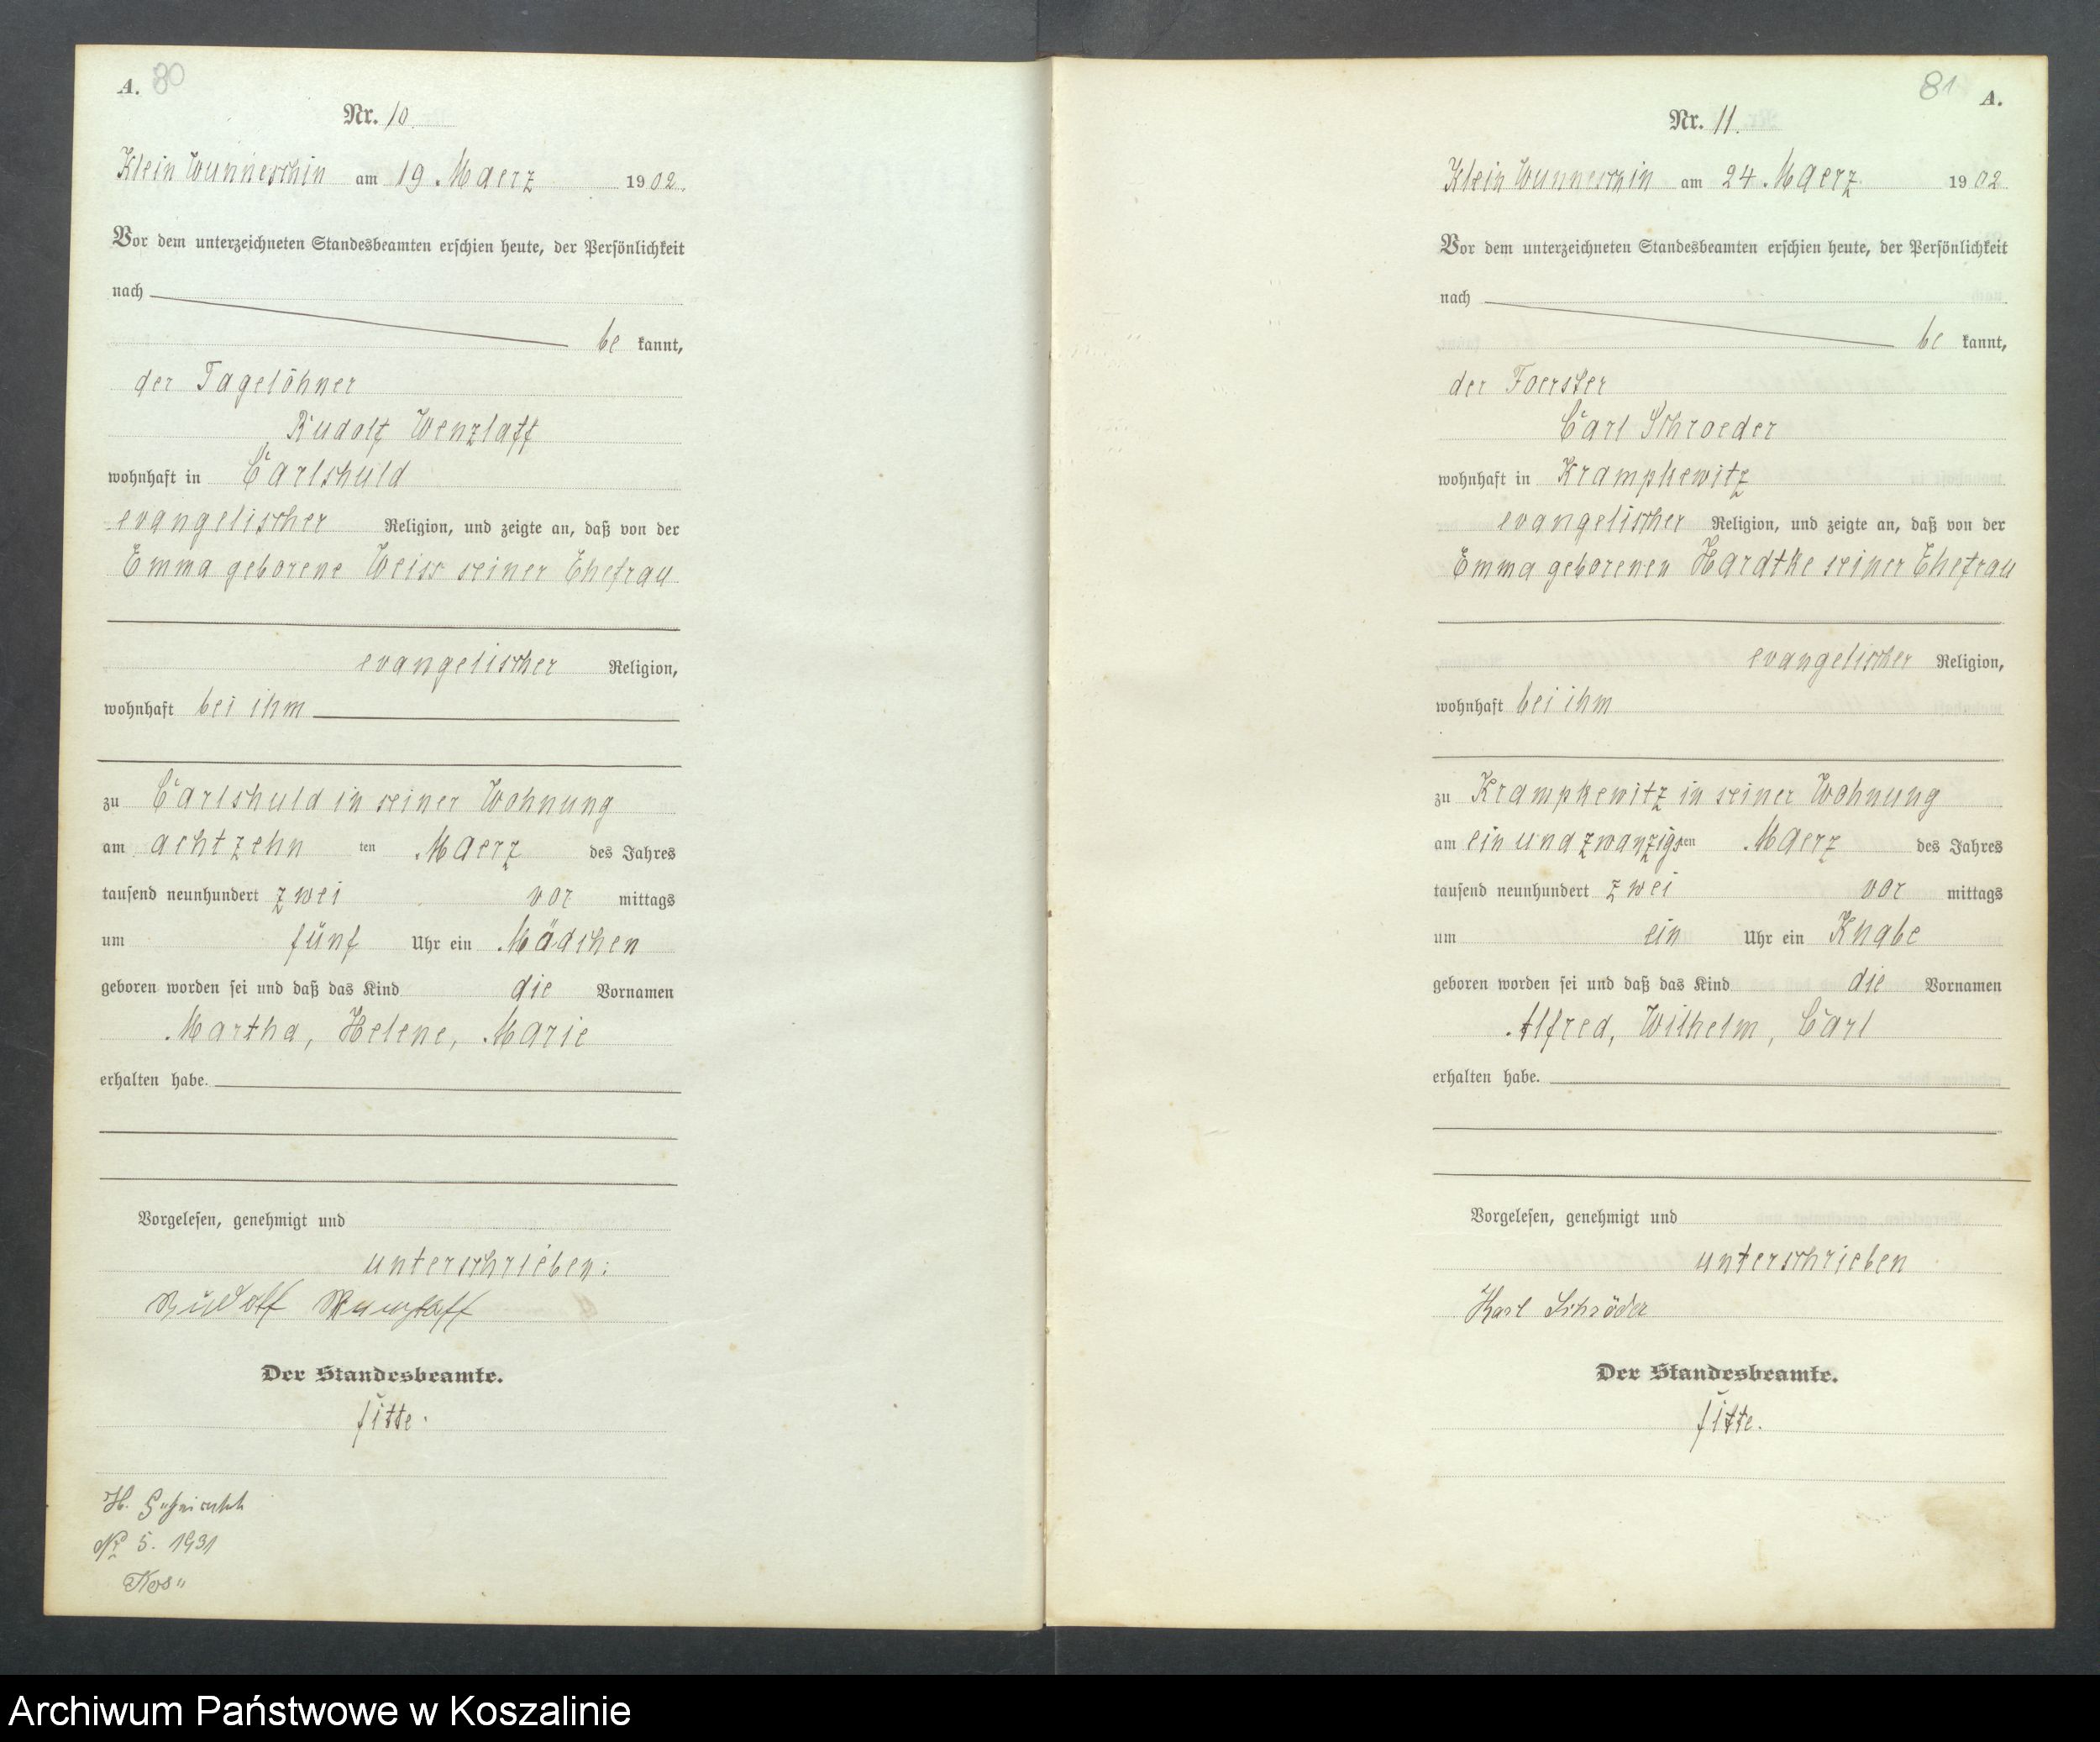 A. 80
Nr. 10.
Klein Wunneschin am 19. Maerz 1902.
Vor dem unterzeichneten Standesbeamten erschien heute, der Persönlichkeit
nach
be kannt,
der Tagelöhner
Rudolf Wenzlaff
wohnhaft in Carlshuld
evangelischer Religion, und zeigte an, daß von der
Emma geborene Weiss seiner Ehefrau
evangelischer Religion,
wohnhaft bei ihm
zu Carlshuld in seiner Wohnung
am achtzehn ten Maerz des Jahres
tausend neunhundert zwei vor mittags
um fünf Uhr ein Mädchen
geboren worden sei und daß das Kind die Vornamen
Martha, Helene, Marie
erhalten habe.
Vorgelesen, genehmigt und
unterschrieben:
Rudolf Wenzlaff
Der Standesbeamte.
Fitte.
H.
Nr 5. 1931
81 A.
Nr. 11.
Klein Wunneschin am 24. Maerz 1902
Vor dem unterzeichneten Standesbeamten erschien heute, der Persönlichkeit
nach
be kannt,
der Foerster
Carl Schroeder
wohnhaft in Krampkewitz
evangelischer Religion, und zeigte an, daß von der
Emma geborenen Hardtke seiner Ehefrau
evangelischer Religion,
wohnhaft bei ihm
zu Krampkewitz in seiner Wohnung
am ein und zwanzigsten Maerz des Jahres
tausend neunhundert zwei vor mittags
um ein Uhr ein Knabe
geboren worden sei und daß das Kind die Vornamen
Alfred, Wilhelm, Carl
erhalten habe.
Vorgelesen, genehmigt und
unterschrieben
Karl Schröder
Der Standesbeamte.
Fitte.
Archiwum Państwowe w Koszalinie